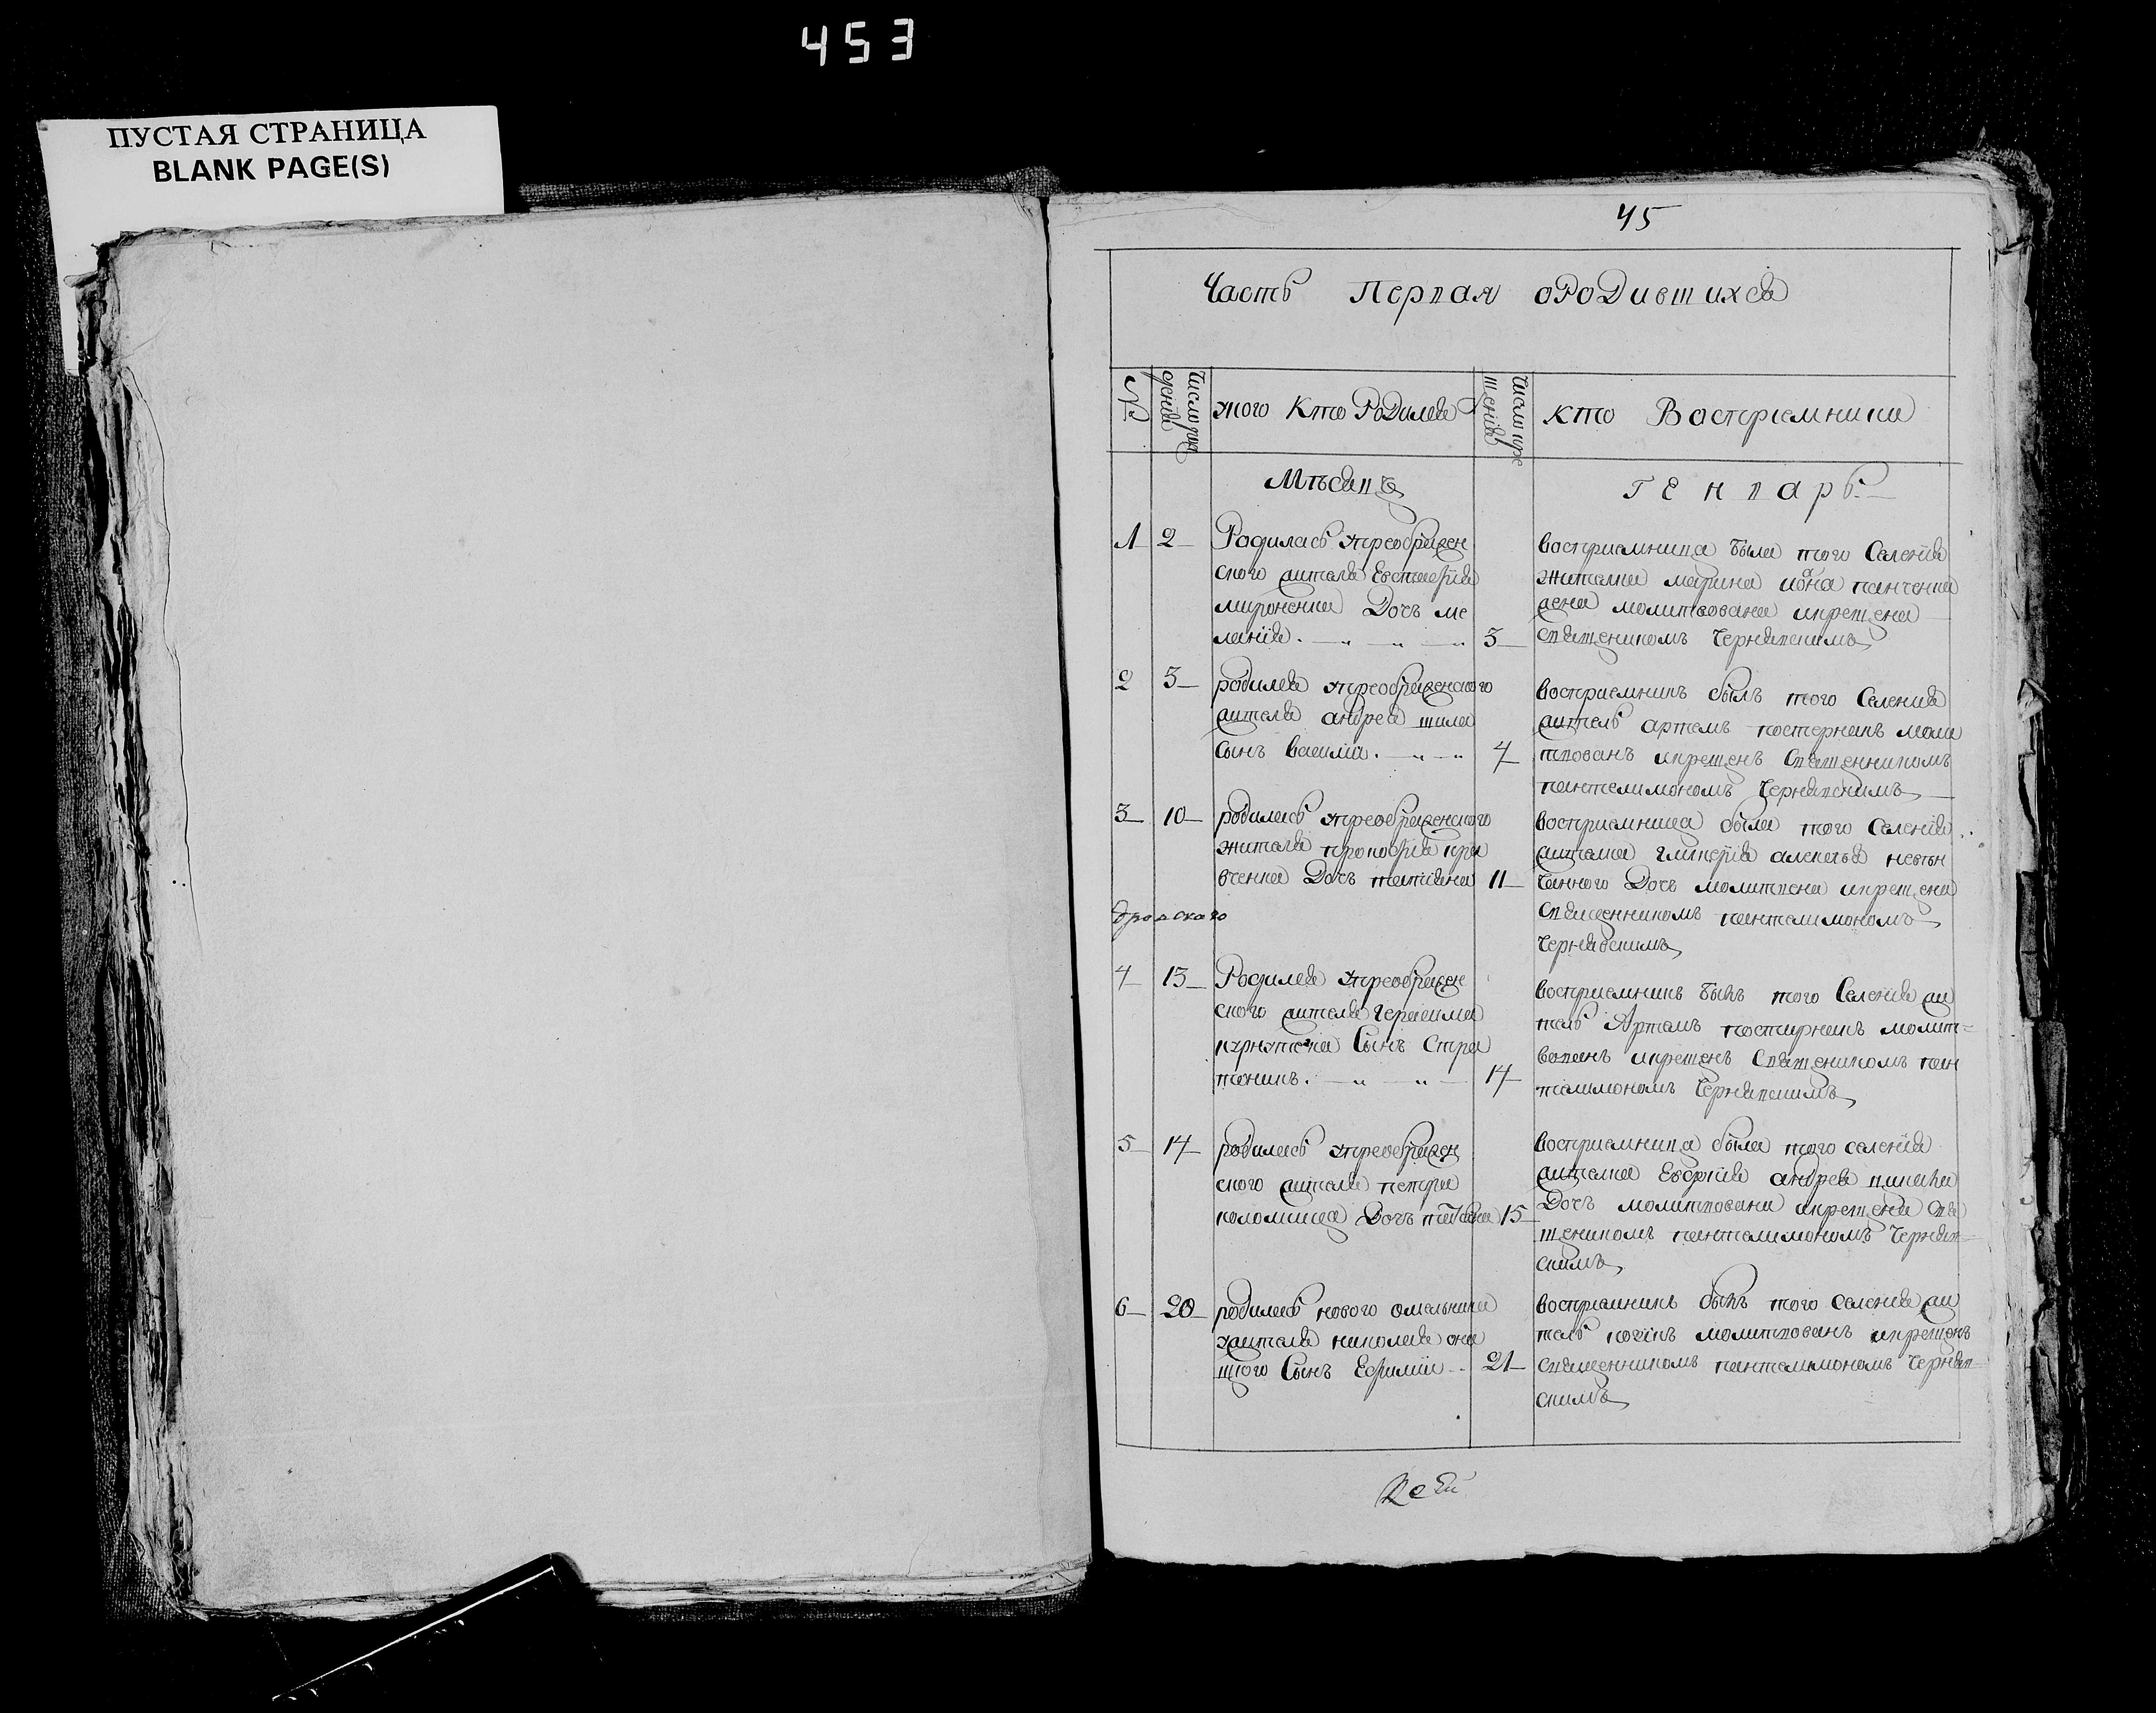 453
ПУСТАЯ СТРАНИЦА
BLANK PAGE(S)
45
Часть Первая о Родившихся
№
Число рождения
у кого Кто Родился
Число крещения
кто Восприемники
Мѣсяцъ
Генварь
1 2 Родилась упреображен
ского жителя Евстафия
мироненка Дочъ ме
лания 3
восприемница была того Селения
жителка марина
молитвована икрещена
священикомъ Чернявскимъ
2 3 родился упреображенского
жителя андрея шила
Сынъ василий 4
восприемникъ былъ того Селения
житель артемъ постернакъ моли
твованъ икрещенъ Священникомъ
пантелимономъ Чернявскимъ
3 10 родилась упреображенского
жителя прокофия кра
вченка Дочъ татияна 11
восприемница была того Селения
жителка
Дочъ молитвена икрещена
Священникомъ панталимономъ
Чернявскимъ
4 13 Родился упреображен
ского жителя герасима
Сынъ Стра
тоникъ 14
восприемникъ былъ того Селения жи
тель Артемъ постирнакъ молит=
вованъ икрещенъ Священикомъ пан
талимономъ Чернявскимъ
5 14 родилась упреображен
ского жителя петра
коломийца Дочъ татияна 15
восприемница была того селения
жителка андрея
Дочъ молитвована икрещена Свя
щеникомъ панталимономъ Черняв=
скимъ
6 20 родилась нового омельника
жителя николая
Сынъ Ефимий 21
восприемникъ былъ того селения жи
тель молитвованъ икрещенъ
священникомъ панталимономъ Черняв=
скимъ